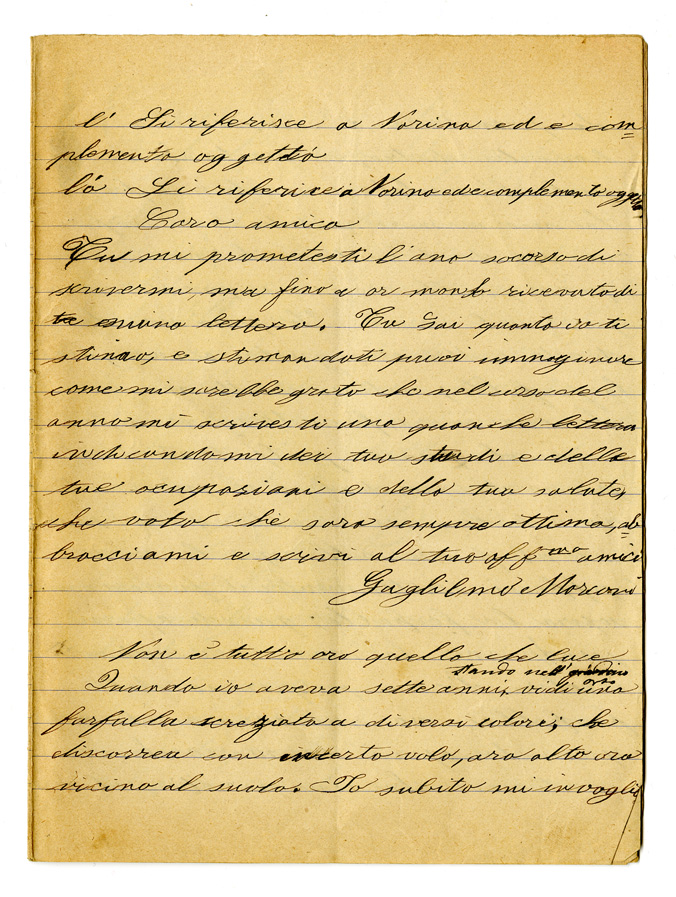 l' Si riferisce a Norina ed e com
plemento oggetto
la Si riferisce a Norina ed e complemento ogge
Caro amico
Tu mi prometesti l'ano scorso di
scrivermi, ma fino a or non ho ricevuto di
lettera. Tu sai quanto io ti
stimo, e stimandoti puoi immaginare
come mi sarebbe grato che nel corso del
anno mi scrivesti una qualche lettera
indicandomi dei tuo studi e della
tue ocupazioni e della tua salute,
che voto che sara sempre ottima, ab
bracciami e scrivi al tuo aff mo amici
Guglilmo Marconi
Non è tutto oro quello che luce
stando nell' giardino
Quando io aveva sette anni, vidi una
farfalla screziata a diversi colori; che
discorrea con incerto volo, ora alto ora
vicino al suolo. Io subito mi invoglia